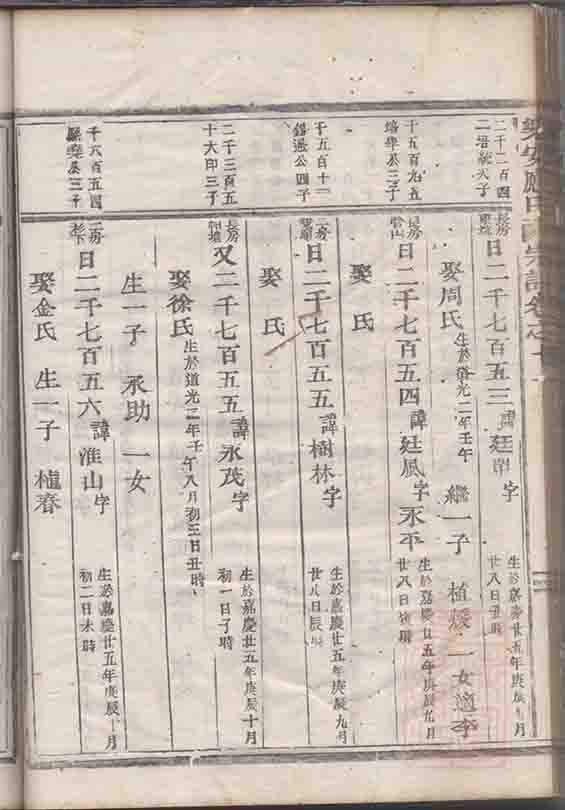 樂安
二千二百四
日二千七百五三諱廷
字
生於嘉慶廿五年庚辰
廿八日丑時
娶周氏
生於道光二年壬午
繼一子
一女適李
千五百九五
日二千七百五四諱廷風字永平
生於嘉慶廿五年庚辰九月
廿八日
時
娶
氏
千五百十一
錫
公四子
日二千七百五五諱樹林字
生於嘉慶廿五年庚辰九月
廿八日辰時
娶
氏
二千三百五
十大印三子
長房
又二千七百五五諱永茂字
生於嘉慶廿五年庚辰十月
初一日子時
娶徐氏
生於道光二年壬午八月初三日丑時
生一子
承助
一女
千六百五四
二房
日二千七百五六諱淮山字
生於嘉慶廿五年庚辰十月
初二日未時
娶金氏
生一子
春